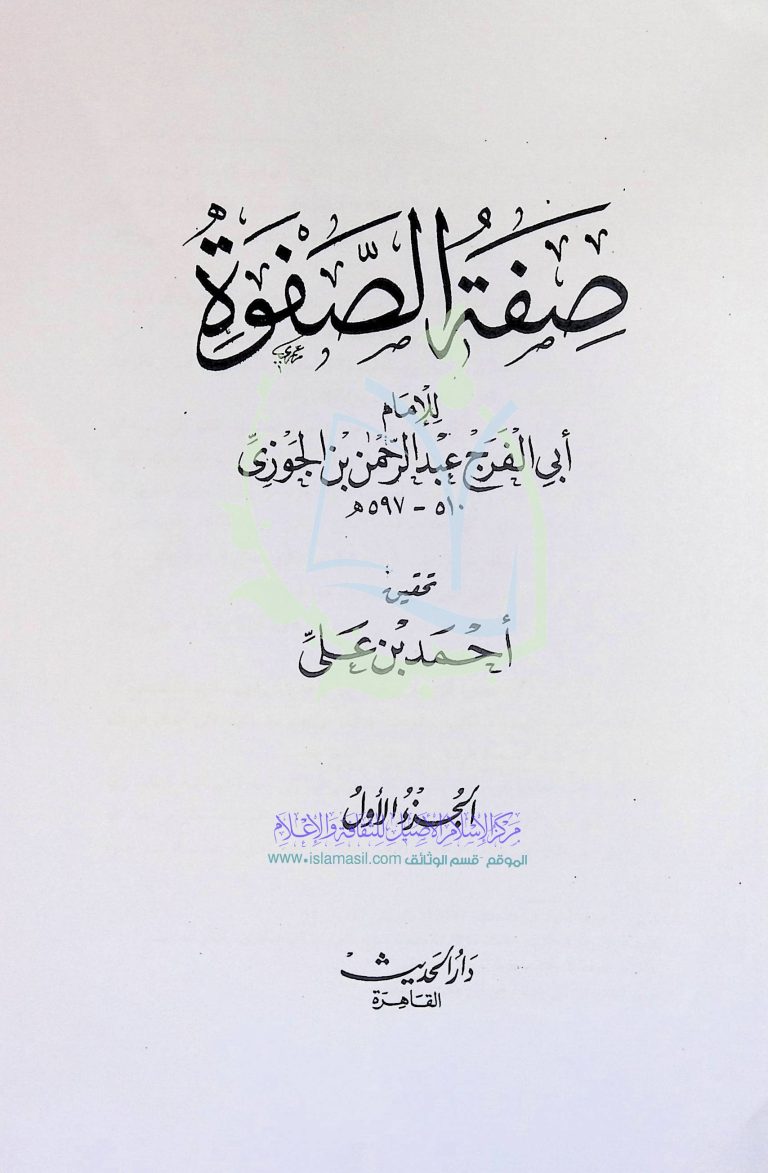 صِفَةُ الصَّفْوَةِ
لِلإِمَام
أبي الْفَرَجْ عَبْد الرَّحْمٰن بْن الجَوْزِيِّ
٥١٠ - ٥٩٧ هـ
تحقيق
أحْمَد بْن عَلِيّ
الجُزءُ الأولُ
مركز الإسلام الأصيل للثقافة والإعلام
الموقع - قسم الوثائق www.islamasil.com
دَارُ الحَديث
القَاهِرَة